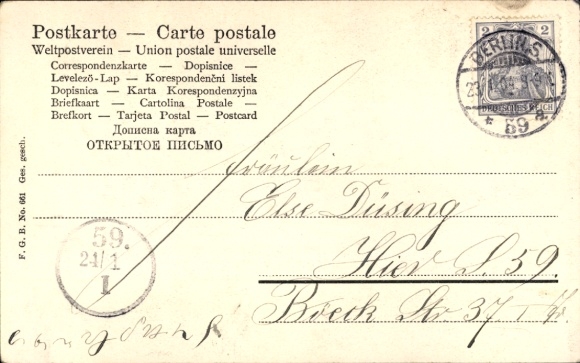 Postkarte — Carte postale
Weltpostverein — Union postale universelle
Correspondenzkarte — Dopisnice —
Levelező-Lap — Korespondenční listek
Dopisnica — Karta Korespondenzyjna
Briefkaart — Cartolina Postale —
Brefkort — Tarjeta Postal — Postcard
Дописна карта
ОТКРЫТОЕ ПИСЬМО
2 2
DEUTSCHES REICH
BERLIN S.
* 59 a.
F. G. B. No. 661 Ges. gesch.
Fräulein
Else Düsing
Hier S. 59.
Boeck Str 37
59.
24/1
I